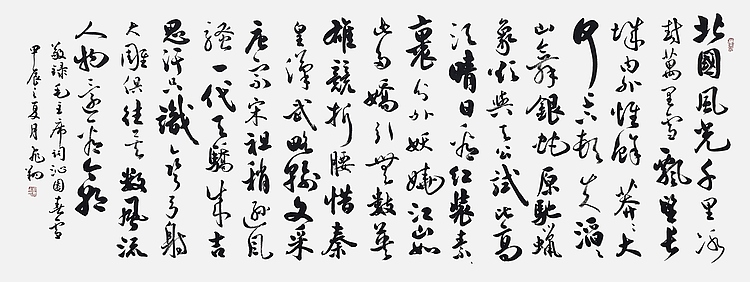 北國風光千里冰
封萬里雪飄望長
城內外惟餘莽々大
河上下頓失滔々
山舞銀蛇原馳蠟
象欲與天公試比高
須晴日看紅裝素
裹分外妖嬈江山如
此多嬌引無數英
雄競折腰惜秦
皇漢武略輸文采
唐宗宋祖稍遜風
騷一代天驕成吉
思汗只識彎弓射
大雕俱往矣數風流
人物還看今朝
敬錄毛主席詞沁園春雪
甲辰之夏月